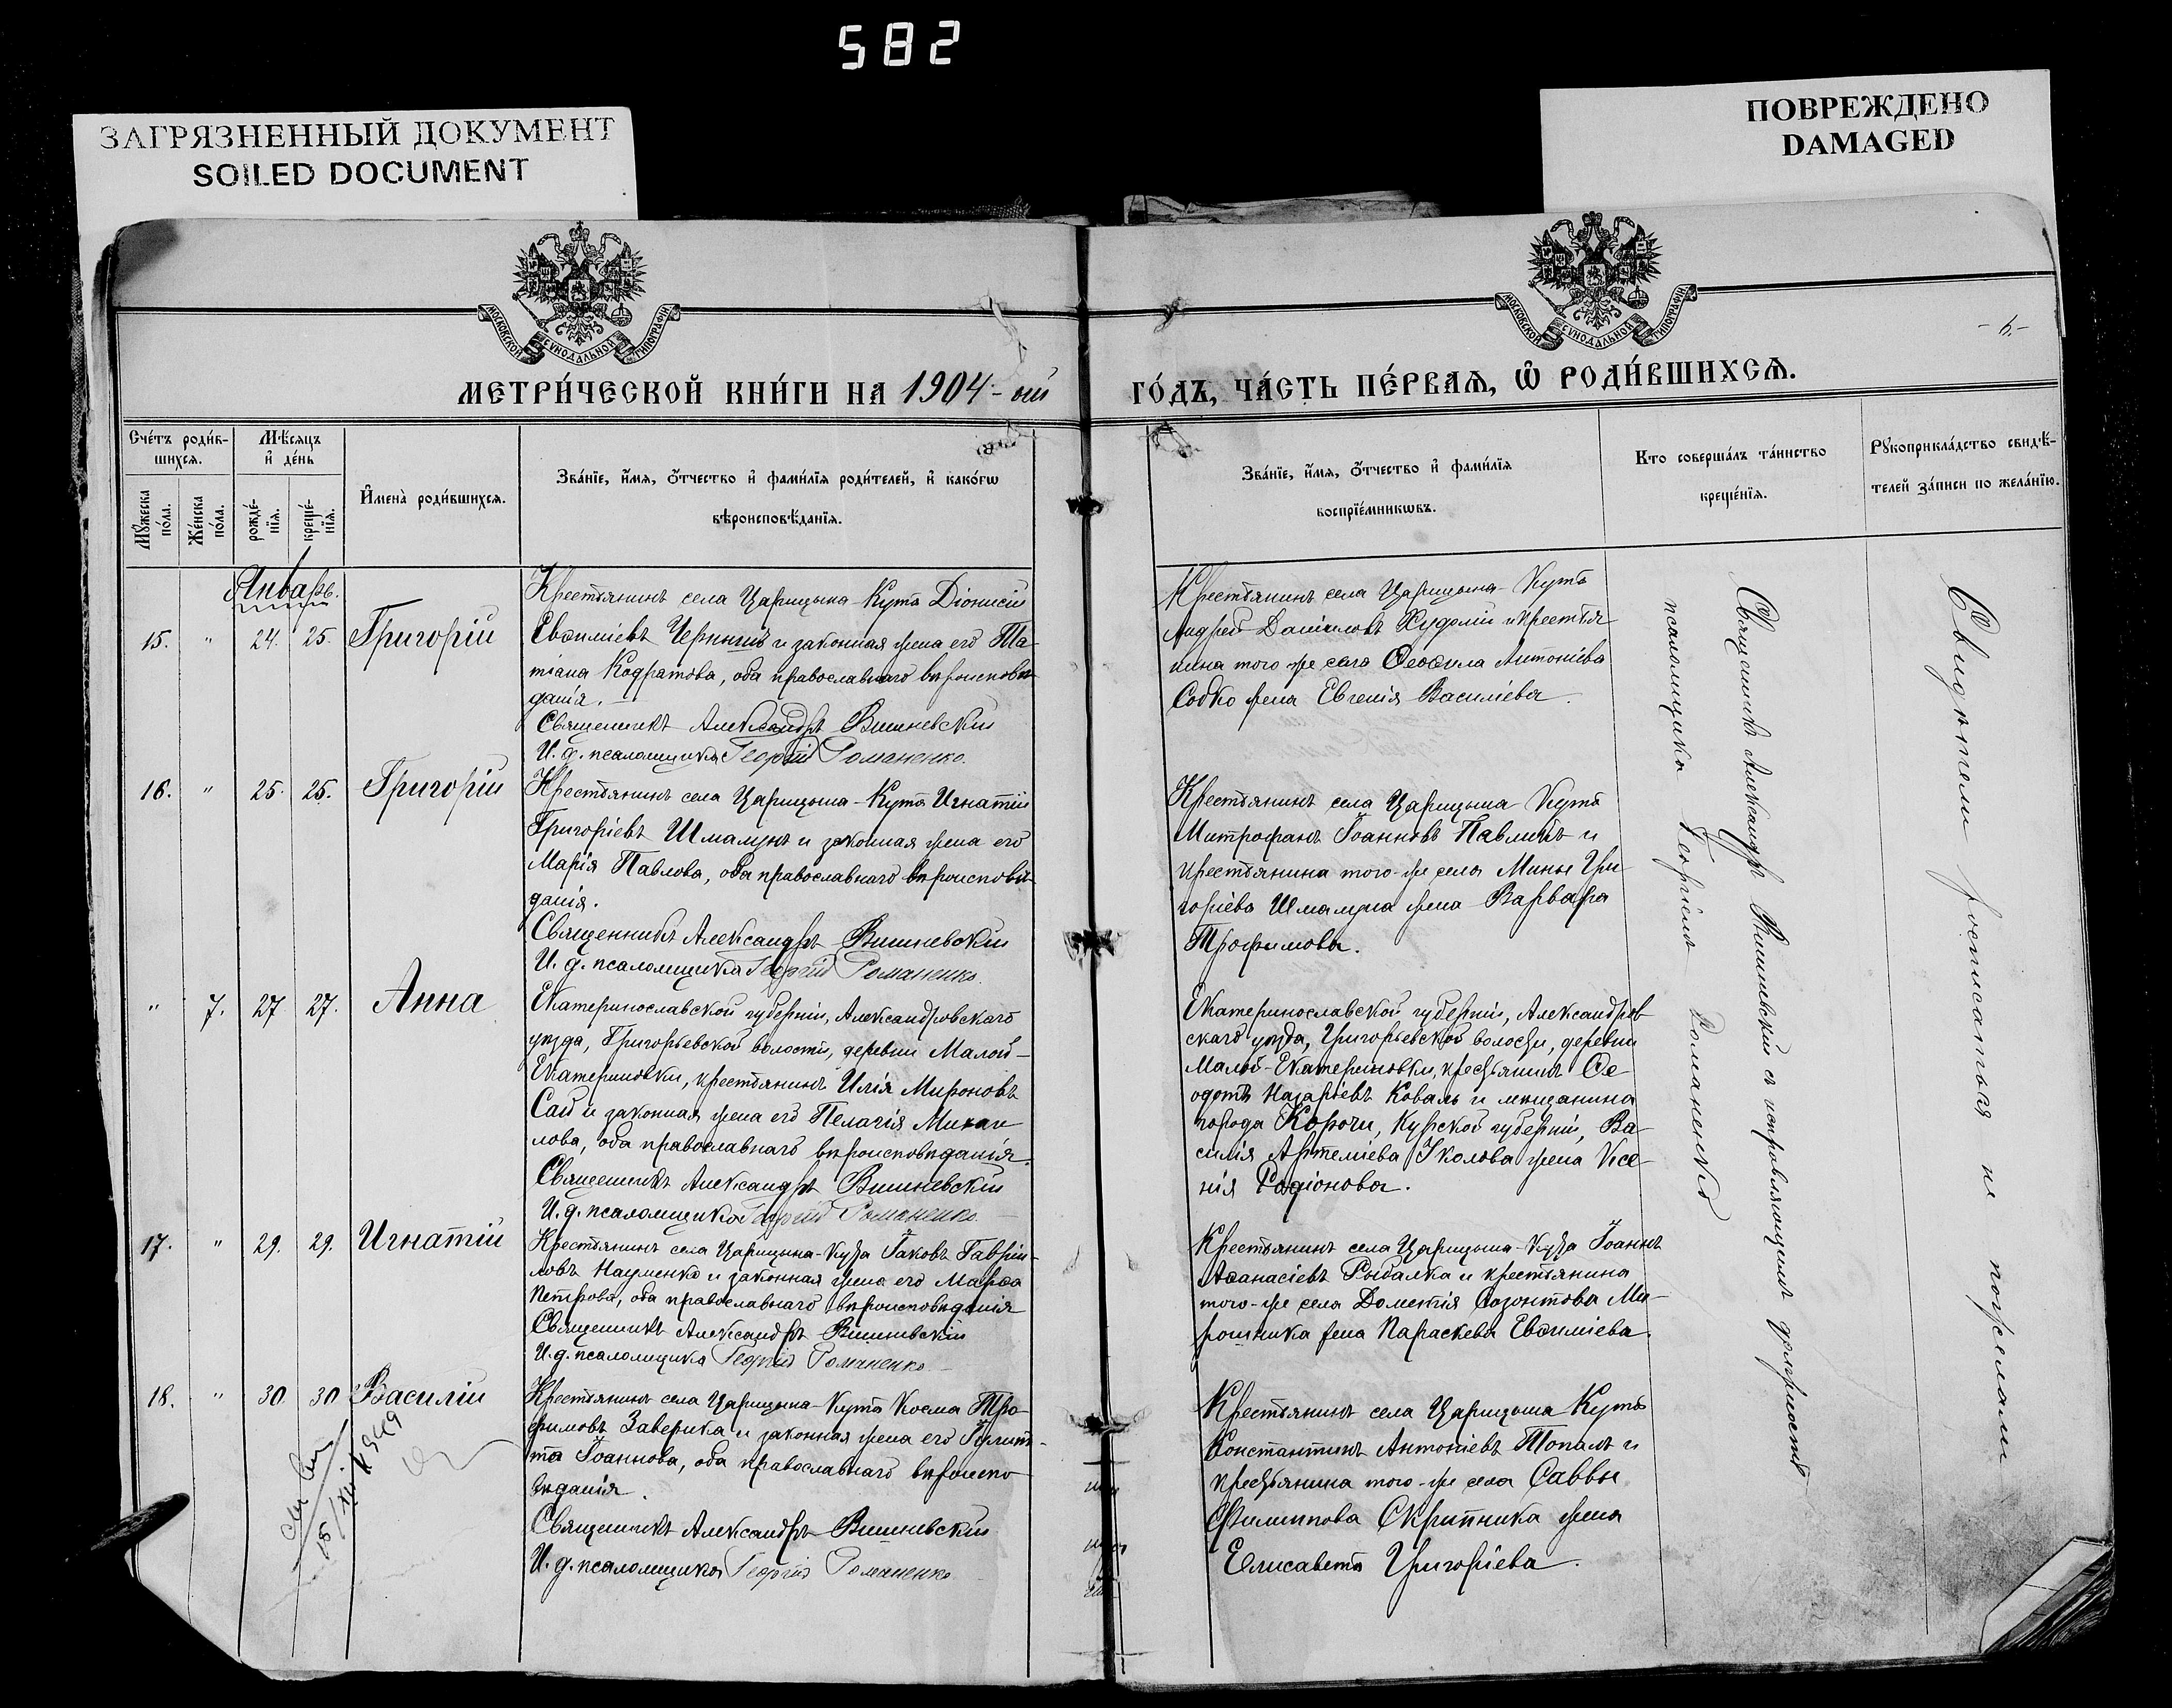 582
ЗАГРЯЗНЕННЫЙ ДОКУМЕНТ
SOILED DOCUMENT
ПОВРЕЖДЕНО
DAMAGED
МОСКОВСКОЙ СѴНОДАЛЬНОЙ ТИПОГРАФІИ
МОСКОВСКОЙ СѴНОДАЛЬНОЙ ТИПОГРАФІИ
МЕТРИ́ЧЕСКОЙ КНИ́ГИ НА 1904-ый
ГО́ДЪ, ЧА́СТЬ ПЕ́РВАѦ, Ѡ҆ РОДИ́ВШИХСѦ.
Сче́тъ роди́в-
шихсѧ.
Мѣ́сѧцъ
и҆ де́нь
Мꙋ́жеска
по́ла.
Же́нска
по́ла.
рожде́-
нїѧ.
креще́-
нїѧ.
И҆мена̀ роди́вшихсѧ.
Зва́нїе, и҆́мѧ, ѻ҆́тчество и҆ фами́лїѧ роди́телей, и҆ како́гѡ
вѣроисповѣ́данїѧ.
Зва́нїе, и҆́мѧ, ѻ҆́тчество и҆ фами́лїѧ
воспрїе́мникѡвъ.
Кто соверша́лъ та́инство
креще́нїѧ.
Рꙋкоприкла́дство свидѣ́-
телей за́писи по жела́нїю.
Январь.
15. " 24. 25. Григорій
Крестьянинъ села Царицына-Кута Діонисій
Евѳиміевъ и законная жена его Та-
тіана Кодратова, оба православнаго вѣроисповѣ-
данія.
Священникъ Александръ Вишневскій
И. д. псаломщика Георгій Романенко.
Крестьянинъ села Царицына-Кута
Андрей Даніиловъ Худолій и крестья-
нина того же села Антоніева
Собко жена Евгенія Василіева.
16. " 25. 25. Григорій
Крестьянинъ села Царицына-Кута Игнатій
Григоріевъ и законная жена его
Марія Павлова, оба православнаго вѣроисповѣ-
данія.
Священникъ Александръ Вишневскій
И. д. псаломщика Георгій Романенко.
Крестьянинъ села Царицына Кута
Митрофанъ Іоанновъ и
крестьянина того-же села Мины Гри-
горіева жена Варвара
Трофимова.
" 7. 27 27. Анна
Екатеринославской губерніи, Александровскаго
уѣзда, Григорьевской волости, деревни Малой-
Екатериновки, крестьянинъ Илія Мироновъ
Сай и законная жена его Пелагія Михаи-
лова, оба православнаго вѣроисповѣданія.
Священникъ Александръ Вишневскій
И. д. псаломщика Георгій Романенко
Екатеринославской губерніи, Александров-
скаго уѣзда, Григорьевской волости, деревни
Малой-Екатериновки, крестьянинъ Ѳе-
одотъ Назаріевъ Коваль и мѣщанина
города Корочи, Курской губерніи, Ва-
силія Артеміева жена Ксе-
нія Родіонова.
17. " 29. 29. Игнатій
Крестьянинъ села Царицына-Кута Іаковъ Гавріи-
ловъ Науменко и законная жена его Марѳа
Петрова, оба православнаго вѣроисповѣданія
Священникъ Александръ Вишневскій
И. д. псаломщика Георгій Романенко
Крестьянинъ села Царицына-Кута Іоаннъ
Аѳанасіевъ Рыбалка и крестьянина
того-же села Дометія Созонтова Ми-
рошника жена Параскева Евѳиміева.
18. " 30 30 Василій
Крестьянинъ села Царицына-Кута Косма Тро-
фимовъ Заверика и законная жена его Іулит-
та Іоаннова, оба православнаго вѣроиспо-
вѣданія.
Священникъ Александръ Вишневскій
И. д. псаломщика Георгій Романенко
Крестьянинъ села Царицына Кута
Константинъ Антоніевъ Топалъ и
крестьянина того-же села Саввы
Филиппова Скрипника жена
Елисавета Григоріева.
Священникъ Александръ Вишневскій съ исправляющимъ должность
псаломщика Георгіемъ Романенко
Свидѣтели росписаться не пожелали